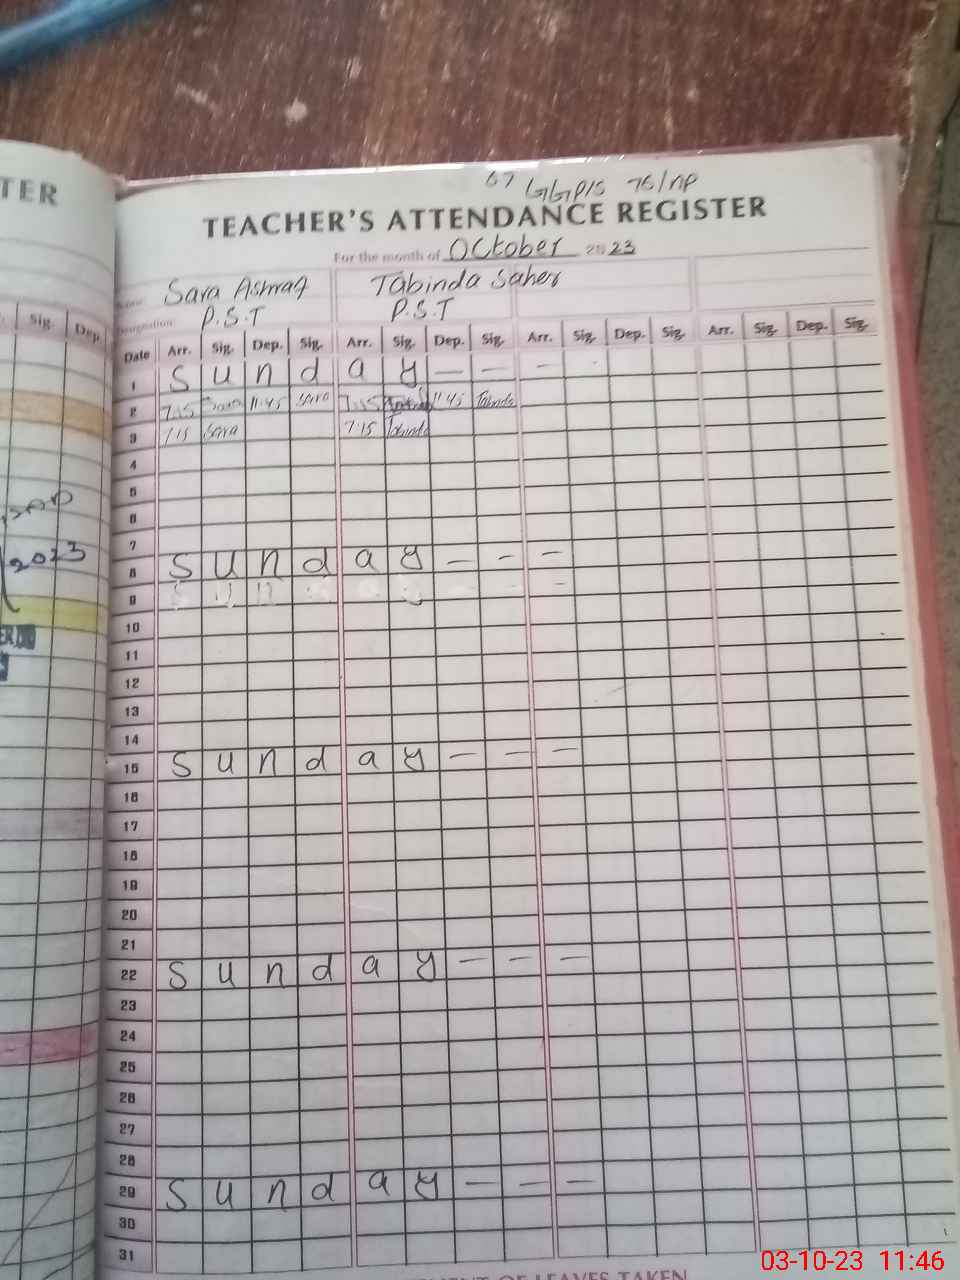 TER
GGP/S 76/NP
TEACHER'S ATTENDANCE REGISTER
For the month of October 2023
Name Sara Ashraf Tabinda Saher
Designation P.S.T P.S.T
Sig. Dep.
Date Arr. Sig. Dep. Sig. Arr. Sig. Dep. Sig. Arr. Sig. Dep. Sig. Arr. Sig. Dep. Sig.
1 S u n d a y — — —
2 7:15 Sara 11:45 Sara 7:15 11:45 Tabinda
3 7:15 Sara 7:15 Tabinda
4
5
6
7
8 S u n d a y — — —
9 S u n
10
11
12
13
14
15 S u n d a y — — —
16
17
18
19
20
21
22 S u n d a y — — —
23
24
25
26
27
28
29 S u n d a y — — —
30
31
2023
OF LEAVES TAKEN
03-10-23 11:46